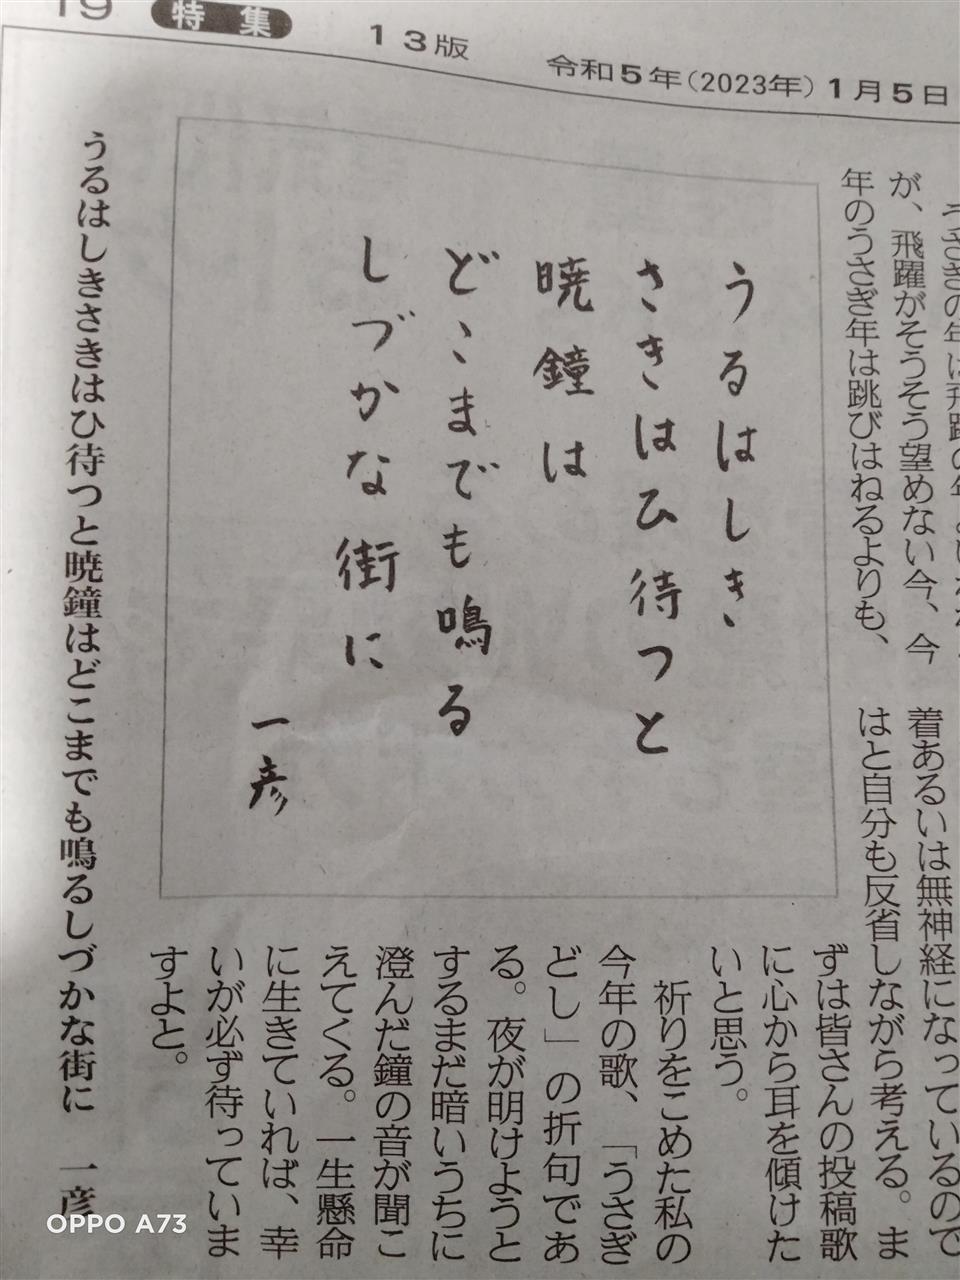 特集
13版
令和5年(2023年)1月5日
が、飛躍がそうそう望めない今、今
年のうさぎ年は跳びはねるよりも、
着あるいは無神経になっているので
はと自分も反省しながら考える。ま
ずは皆さんの投稿歌
に心から耳を傾けた
いと思う。
うるはしき
さきはひ待つと
暁鐘は
どこまでも鳴る
しづかな街に
一彦
祈りをこめた私の
今年の歌、「うさぎ
どし」の折句であ
る。夜が明けようと
するまだ暗いうちに
澄んだ鐘の音が聞こ
えてくる。一生懸命
に生きていれば、幸
いが必ず待っていま
すよと。
うるはしきさきはひ待つと暁鐘はどこまでも鳴るしづかな街に 一彦
OPPO A73